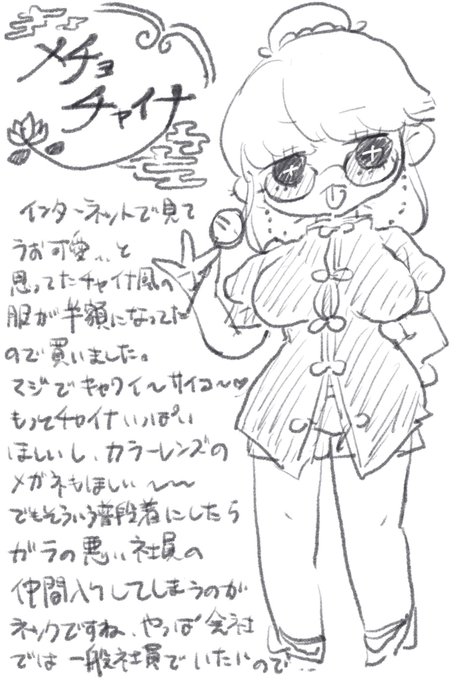 メチョ
チャイナ
インターネットで見て
うお可愛、、と
思ってたチャイナ風の
服が半額になってた
ので買いました。
マジでキャワイ〜サイコ〜♡
もっとチャイナいっぱい
ほしいし、カラーレンズの
メガネもほしい〜〜
でもそういう普段着にしたら
ガラの悪い社員の
仲間入りしてしまうのが
ネックですね、やっぱ会社
では一般社員でいたいので